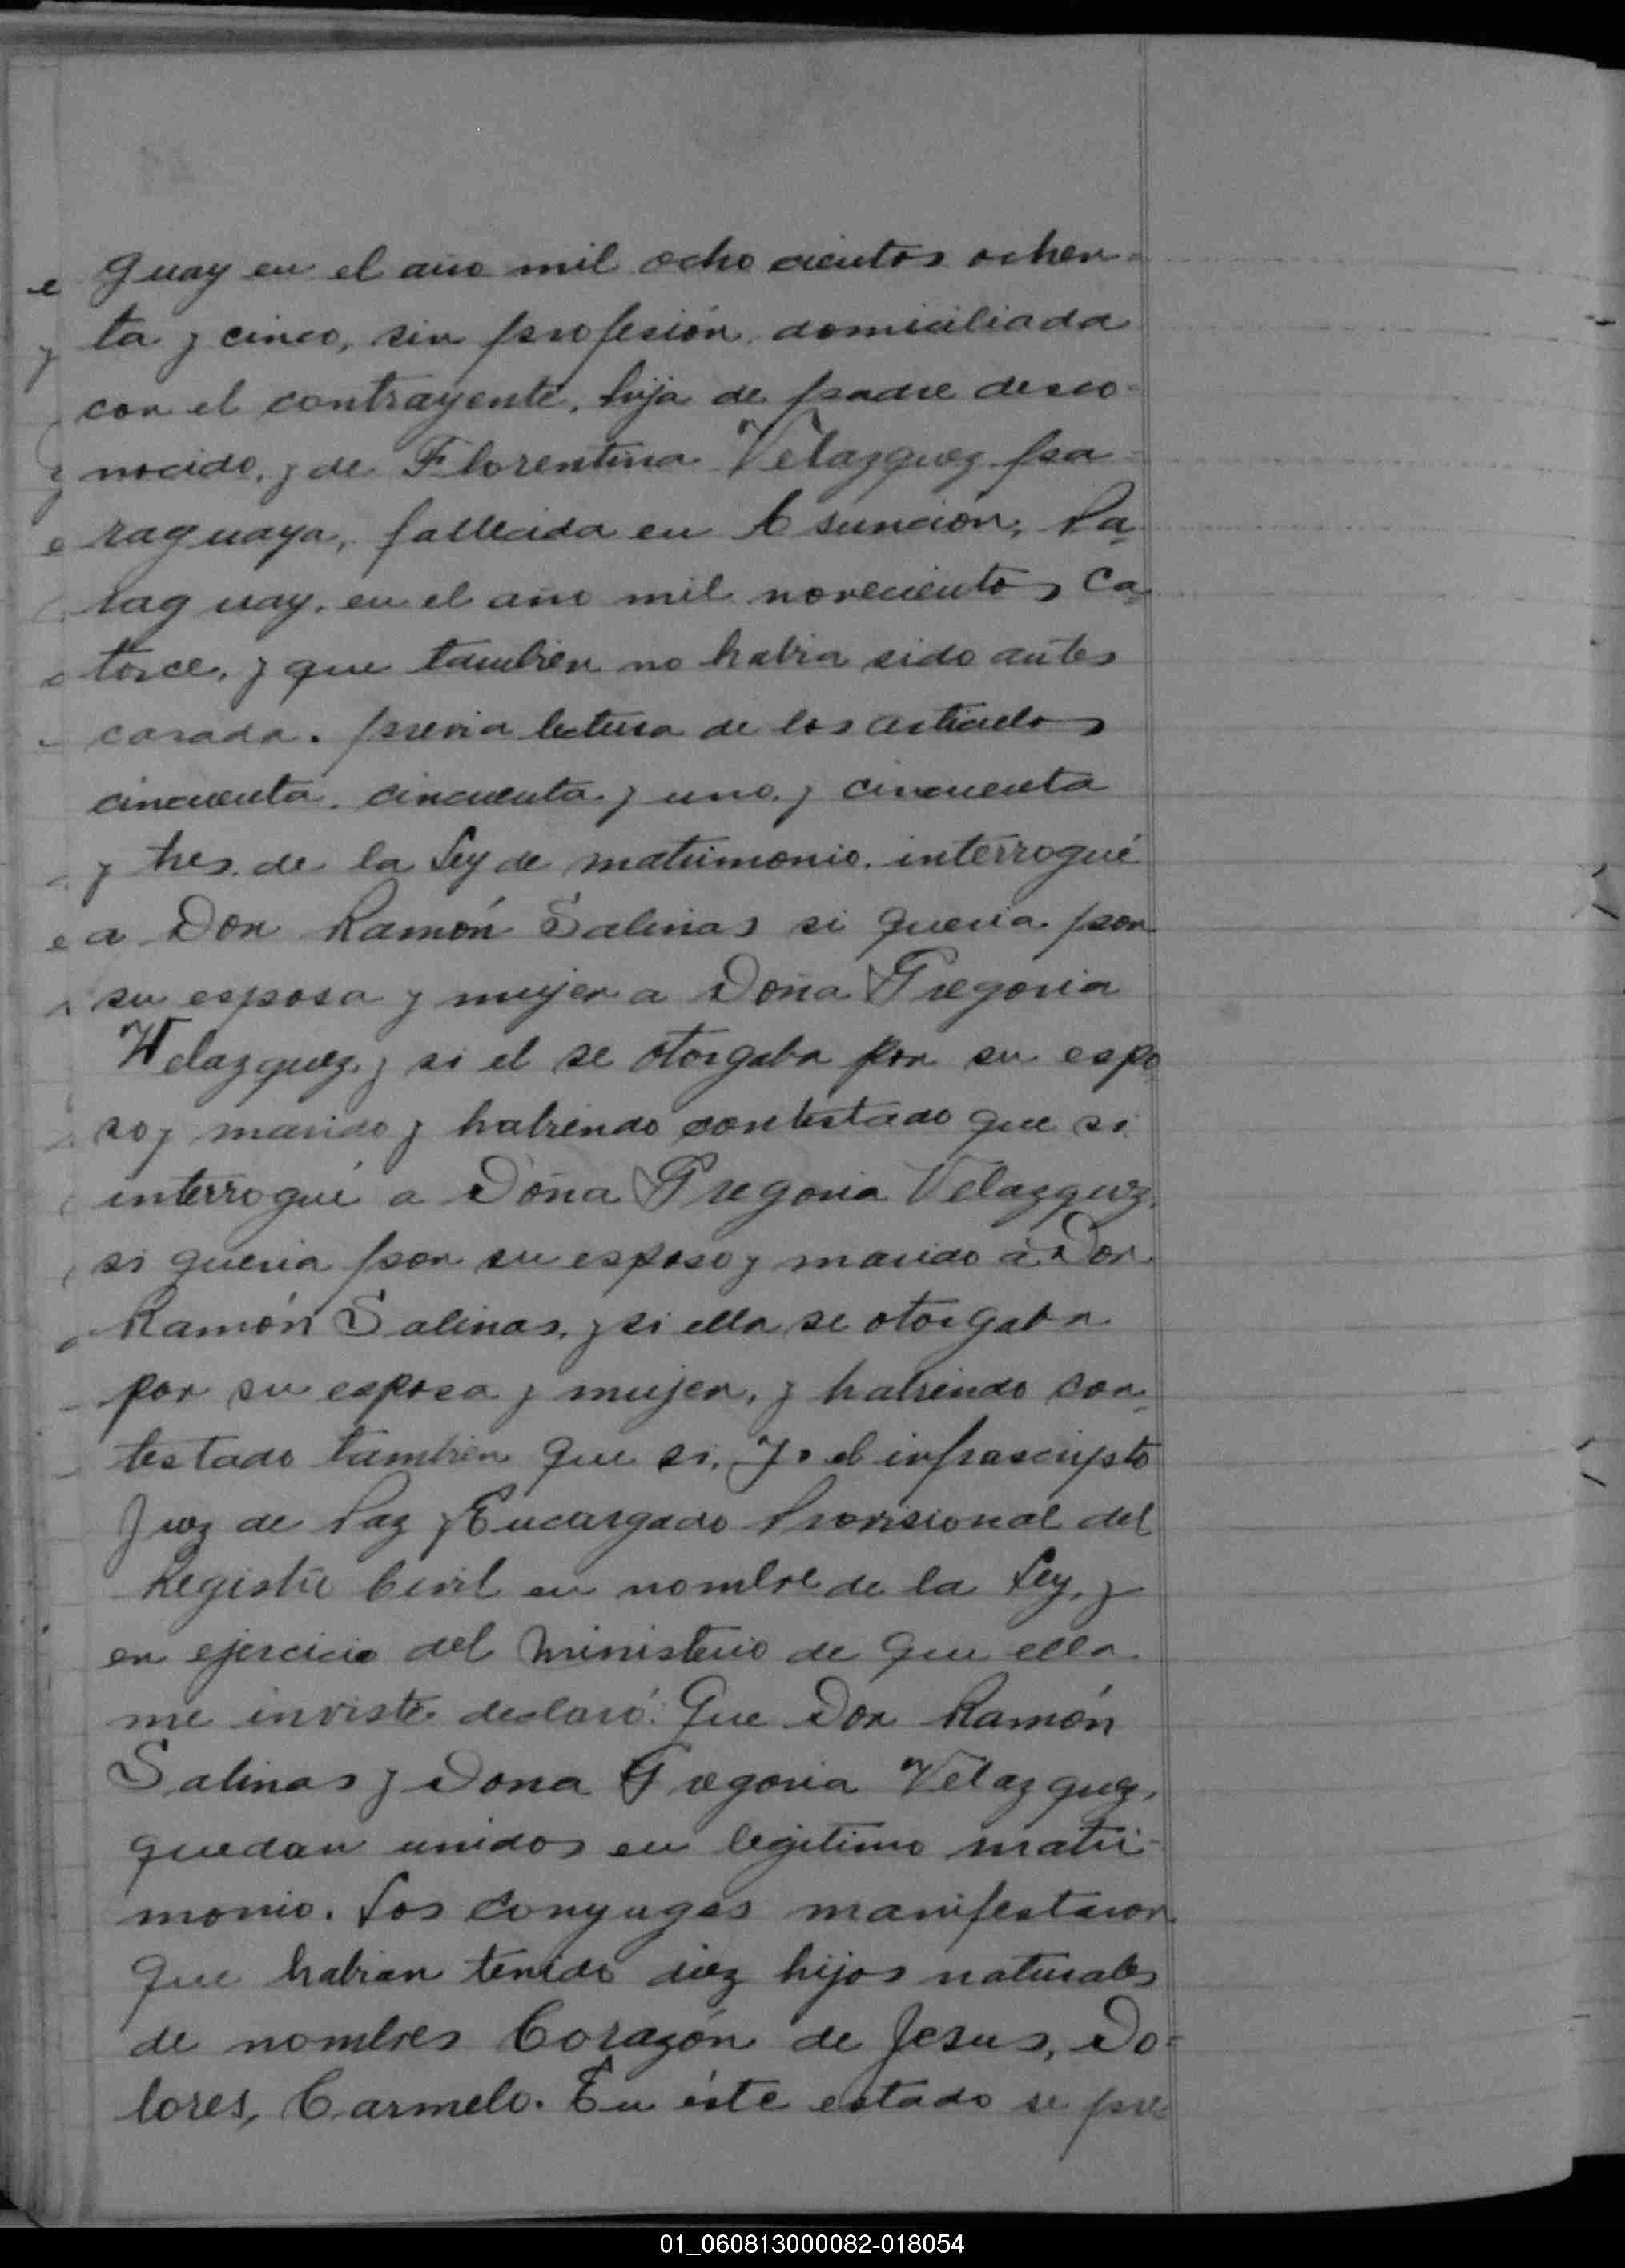 guay en el año mil ocho cientos ochen=
ta y cinco, sin profesión, domiciliada
con el contrayente, hija de padre desco=
nocido, y de Florentina Velazquez pa=
raguaya, fallecida en Asunción, Pa
raguay, en el año mil novecientos ca
torce, y que tambien no habia sido antes
casada. previa lectura de los articulos
cincuenta, cincuenta y uno, y cincuenta
y tres de la Ley de matrimonio, interrogué
a Don Ramón Salinas si queria por
su esposa y mujer a Doña Gregoria
Velazquez, y si el se otorgaba por su espo
so y marido y habiendo contestado que si
interrogué a Doña Gregoria Velazquez,
si queria por su esposo y marido a Don
Ramón Salinas, y si ella se otorgaba
por su esposa y mujer, y habiendo con
testado tambien que si, Yo el infrascripto
Juez de Paz y Encargado Provisional del
Registro Civil en nombre de la Ley, y
en ejercicio del Ministerio de que ella
me inviste declaró: Que Don Ramón
Salinas y Dona Gregoria Velazquez,
quedan unidos en legitimo matri-
monio. Los conyuges manifestaron
que habian tenido diez hijos naturales
de nombres Corazón de Jesus, Do=
lores, Carmelo. En éste estado se pre=
01_060813000082-018054